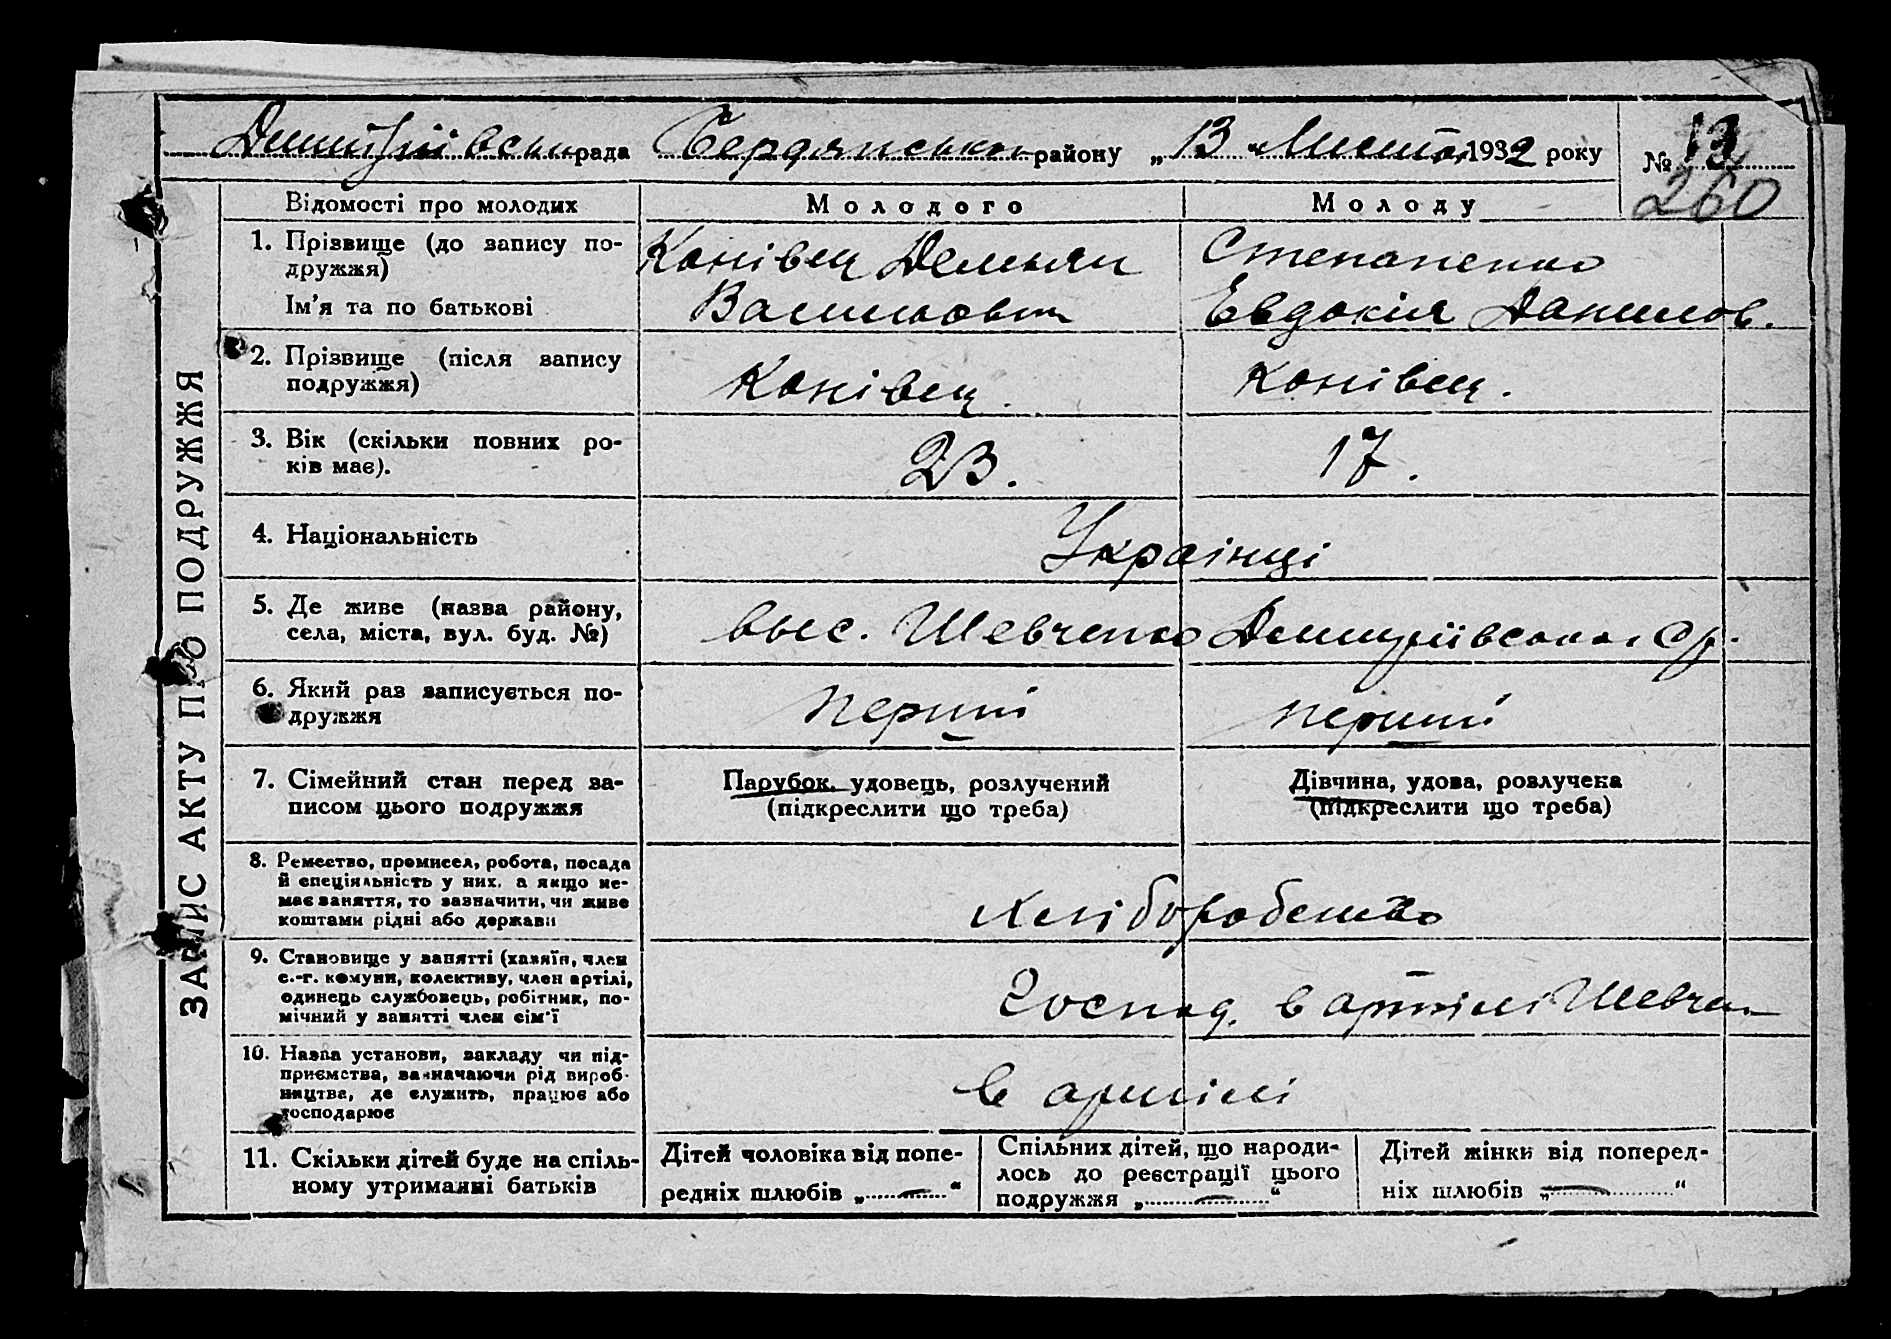 Дмитріївська рада Бердянського району „13“ Листоп. 1932 року № 13
260
ЗАПИС АКТУ ПРО ПОДРУЖЖЯ
Відомості про молодих Молодого Молоду
1. Прізвище (до запису по-
дружжя)
Ім’я та по батькові
Конівец Демьян
Васильович
Степаненко
Евдокія Данилов.
2. Прізвище (після запису
подружжя)
Конівец. Конівец.
3. Вік (скільки повних ро-
ків має).
23. 17.
4. Національність
Українці
5. Де живе (назва району,
села, міста, вул. буд. №)
выс. Шевченко Дмитріївська с/р.
6. Який раз записується по-
дружжя
перший перший
7. Сімейний стан перед за-
писом цього подружжя
Парубок, удовець, розлучений
(підкреслити що треба)
Дівчина, удова, розлучена
(підкреслити що треба)
8. Ремество, промисел, робота, посада
й спеціяльність у них, а якщо не-
має заняття, то зазначити, чи живе
коштами рідні або держави
хліборобство
9. Становище у занятті (хазяїн, член
с.-г. комуни, колективу, член артілі,
одинець службовець, робітник, по-
мічний у занятті член сім’ї
Господ. в артілі Шевчен
10. Назва установи, закладу чи під-
приємства, зазначаючи рід вироб-
ництва, де служить, працює або
господарює
в артілі
11. Скільки дітей буде на спіль-
ному утриманні батьків
Дітей чоловіка від попе-
редніх шлюбів „—“
Спільних дітей, що народи-
лось до реєстрації цього
подружжя „—“
Дітей жінки від поперед-
ніх шлюбів „—“